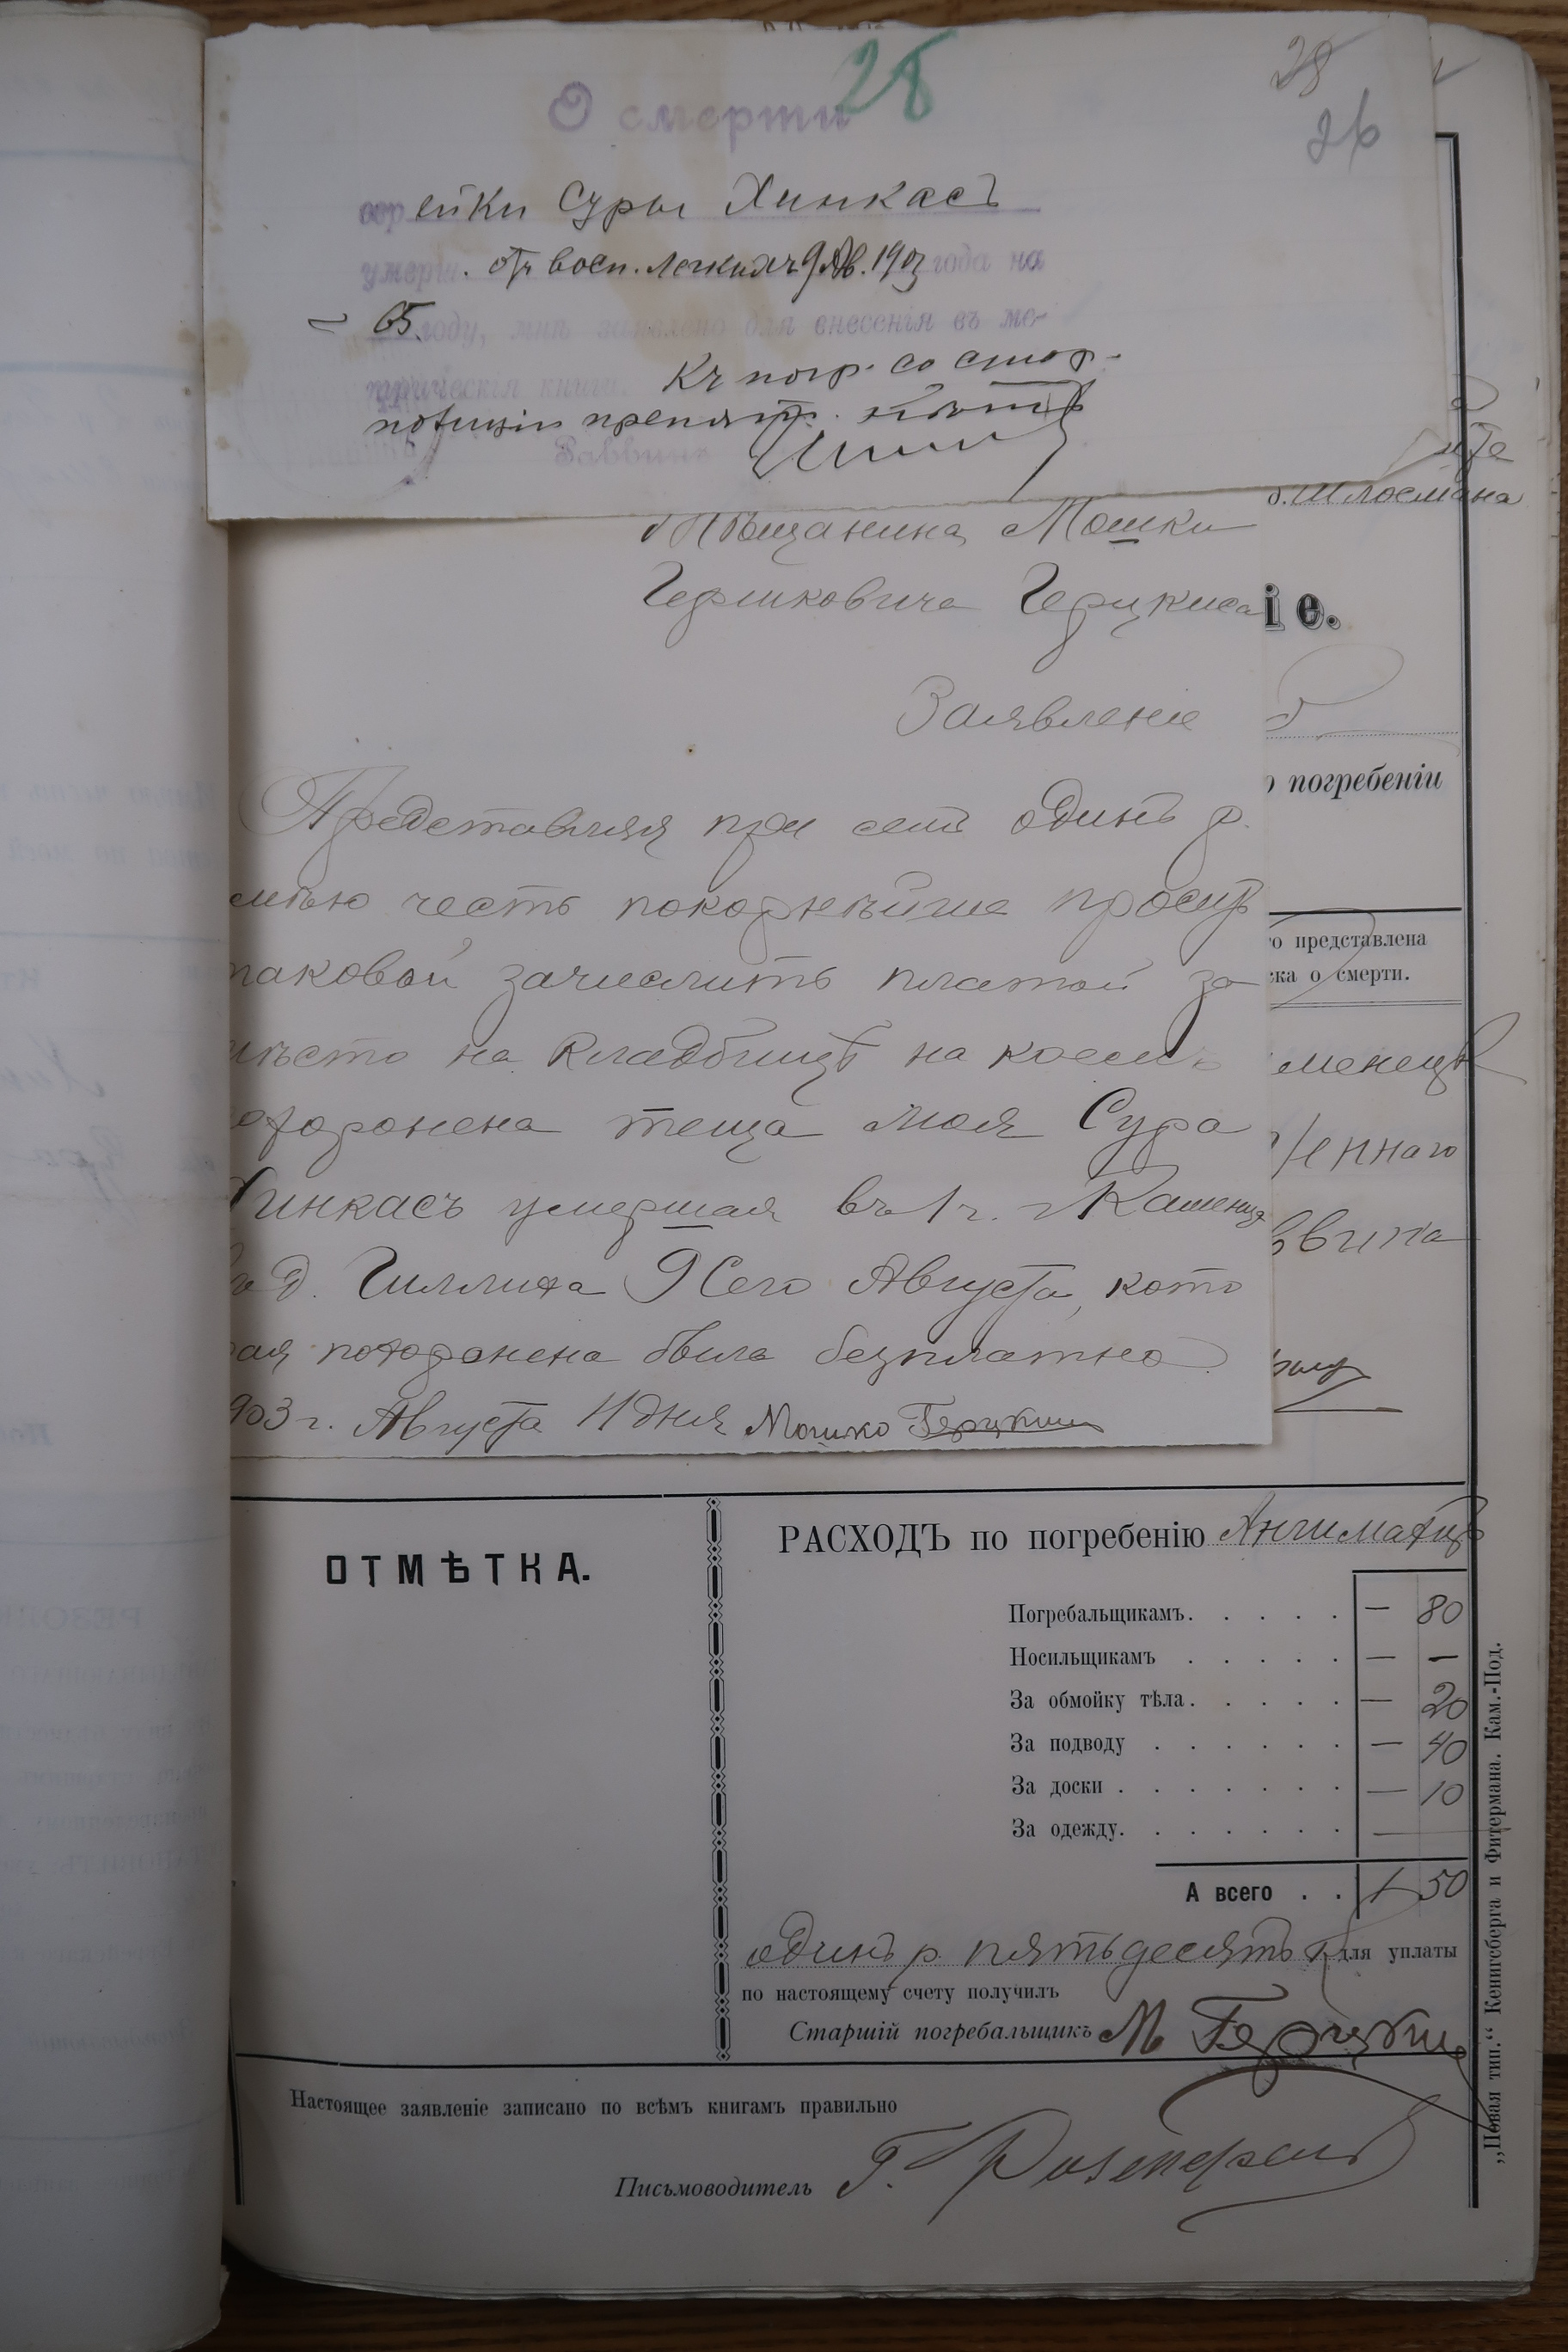 28
28
26
О смерти
еврейки Суры Хинкасъ
умерш. отъ восп. легкихъ 9 Ав. 1903 года на
65 году, мнѣ заявлено для внесенія въ ме-
трическія книги. Къ погр. со стор.
полиціи препят. нѣтъ
Раввинъ
б. Шлоемана
Мѣщанина Мошки
Гершковича Герцкиса
іе.
Заявленіе
о погребеніи
Представляя при семъ одинъ р.
имѣю честь покорнѣйше просить
го представлена
таковой зачислить платой за
ска о смерти.
мѣсто на кладбищѣ на коемъ
менецъ
похоронена теща моя Сура
еннаго
Хинкасъ умершая въ 1 ч. г Каменца
ввина
въ д. Гиллиха 9 сего Августа, кото
рая похоронена была безплатно.
1903 г. Августа 11 дня Мошко Герцкис
ОТМѢТКА.
РАСХОДЪ по погребенію
Погребальщикамъ. — 80
Носильщикамъ — —
За обмойку тѣла. — 20
За подводу — 40
За доски — 10
За одежду. —
А всего 1 50
одинъ р. пятьдесятъ к для уплаты
по настоящему счету получилъ
Старшій погребальщикъ М Герцкис
Настоящее заявленіе записано по всѣмъ книгамъ правильно
Письмоводитель Г.
„Новая тип.“ Кенигсберга и Фитермана. Кам.-Под.